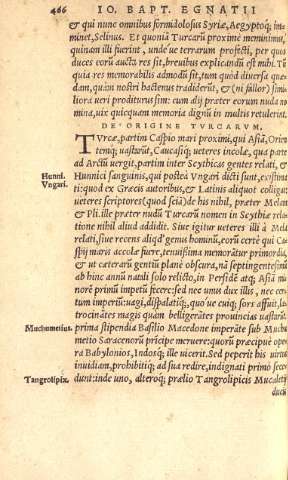 466 IO. BAPT. EGNATII
& qui nunc omnibus formidolosus Syriæ, Aegyptoq; im-
minet, Selinus. Et quonia Turcarū proxime meminimus,
quinam illi fuerint, unde ue terrarum profecti, per quos
duces eorū aucta res sit, breuibus explicandū est mihi. Tū
quia res memorabilis admodū sit, tum quòd diuersa quæ-
dam, quàm nostri hactenus tradiderūt, & (ni fallor) simi-
liora ueri prodituri simus: cum alij præter eorum nuda no
mina, uix quicquam memoria dignū in multis retulerint.
DE ORIGINE TVRCARVM.
TVrcæ, partim Caspio mari proximi, qui Asiā, Orien
temq; uastarūt, Caucasiq; ueteres incolæ, qua parte
ad Arctū uergit, partim inter Scythicas gentes relati, &
Hunni. Hunnici sanguinis, qui postea Vngari dicti sunt, existim̄
Vngari. ti: quod ex Græcis autoribus, & Latinis aliquot colligas
ueteres scriptores (quod sciā) de his nihil, præter Melam
& Pli. ille præter nudū Turcarū nomen in Scythiæ rela-
tione nihil aliud addidit. Siue igitur ueteres illi à Mela
relati, siue recens aliqd' genus hominū, eorū certè qui Ca
spij maris accolæ fuere, tenuissima memoratur primordia,
& ut cæterarū gentiū planè obscura, nā septingentesimū
ab hinc annū natali solo relicto, in Persidē atq; Asiā mi-
norē primū impetū fecere: sed nec unus dux illis, nec cer-
tum imperiū: uagi, dispalatiq;, quo ue cuiq; sors affuit, la-
trocinātes magis quàm belligerātes prouincias uastarūt.
Muchumetius. prima stipendia Basilio Macedone imperāte sub Muchu
metio Saracenorū principe meruere: quorū præcipuè ope
ra Babylonios, Indosq; ille uicerit. Sed peperit his uirtus
inuidiam, prohibitiq; ad sua redire, indignati primò seces
Tangrolipix. derunt: inde uno, alteroq; prælio Tangrolipicis Mucaleti
ducis